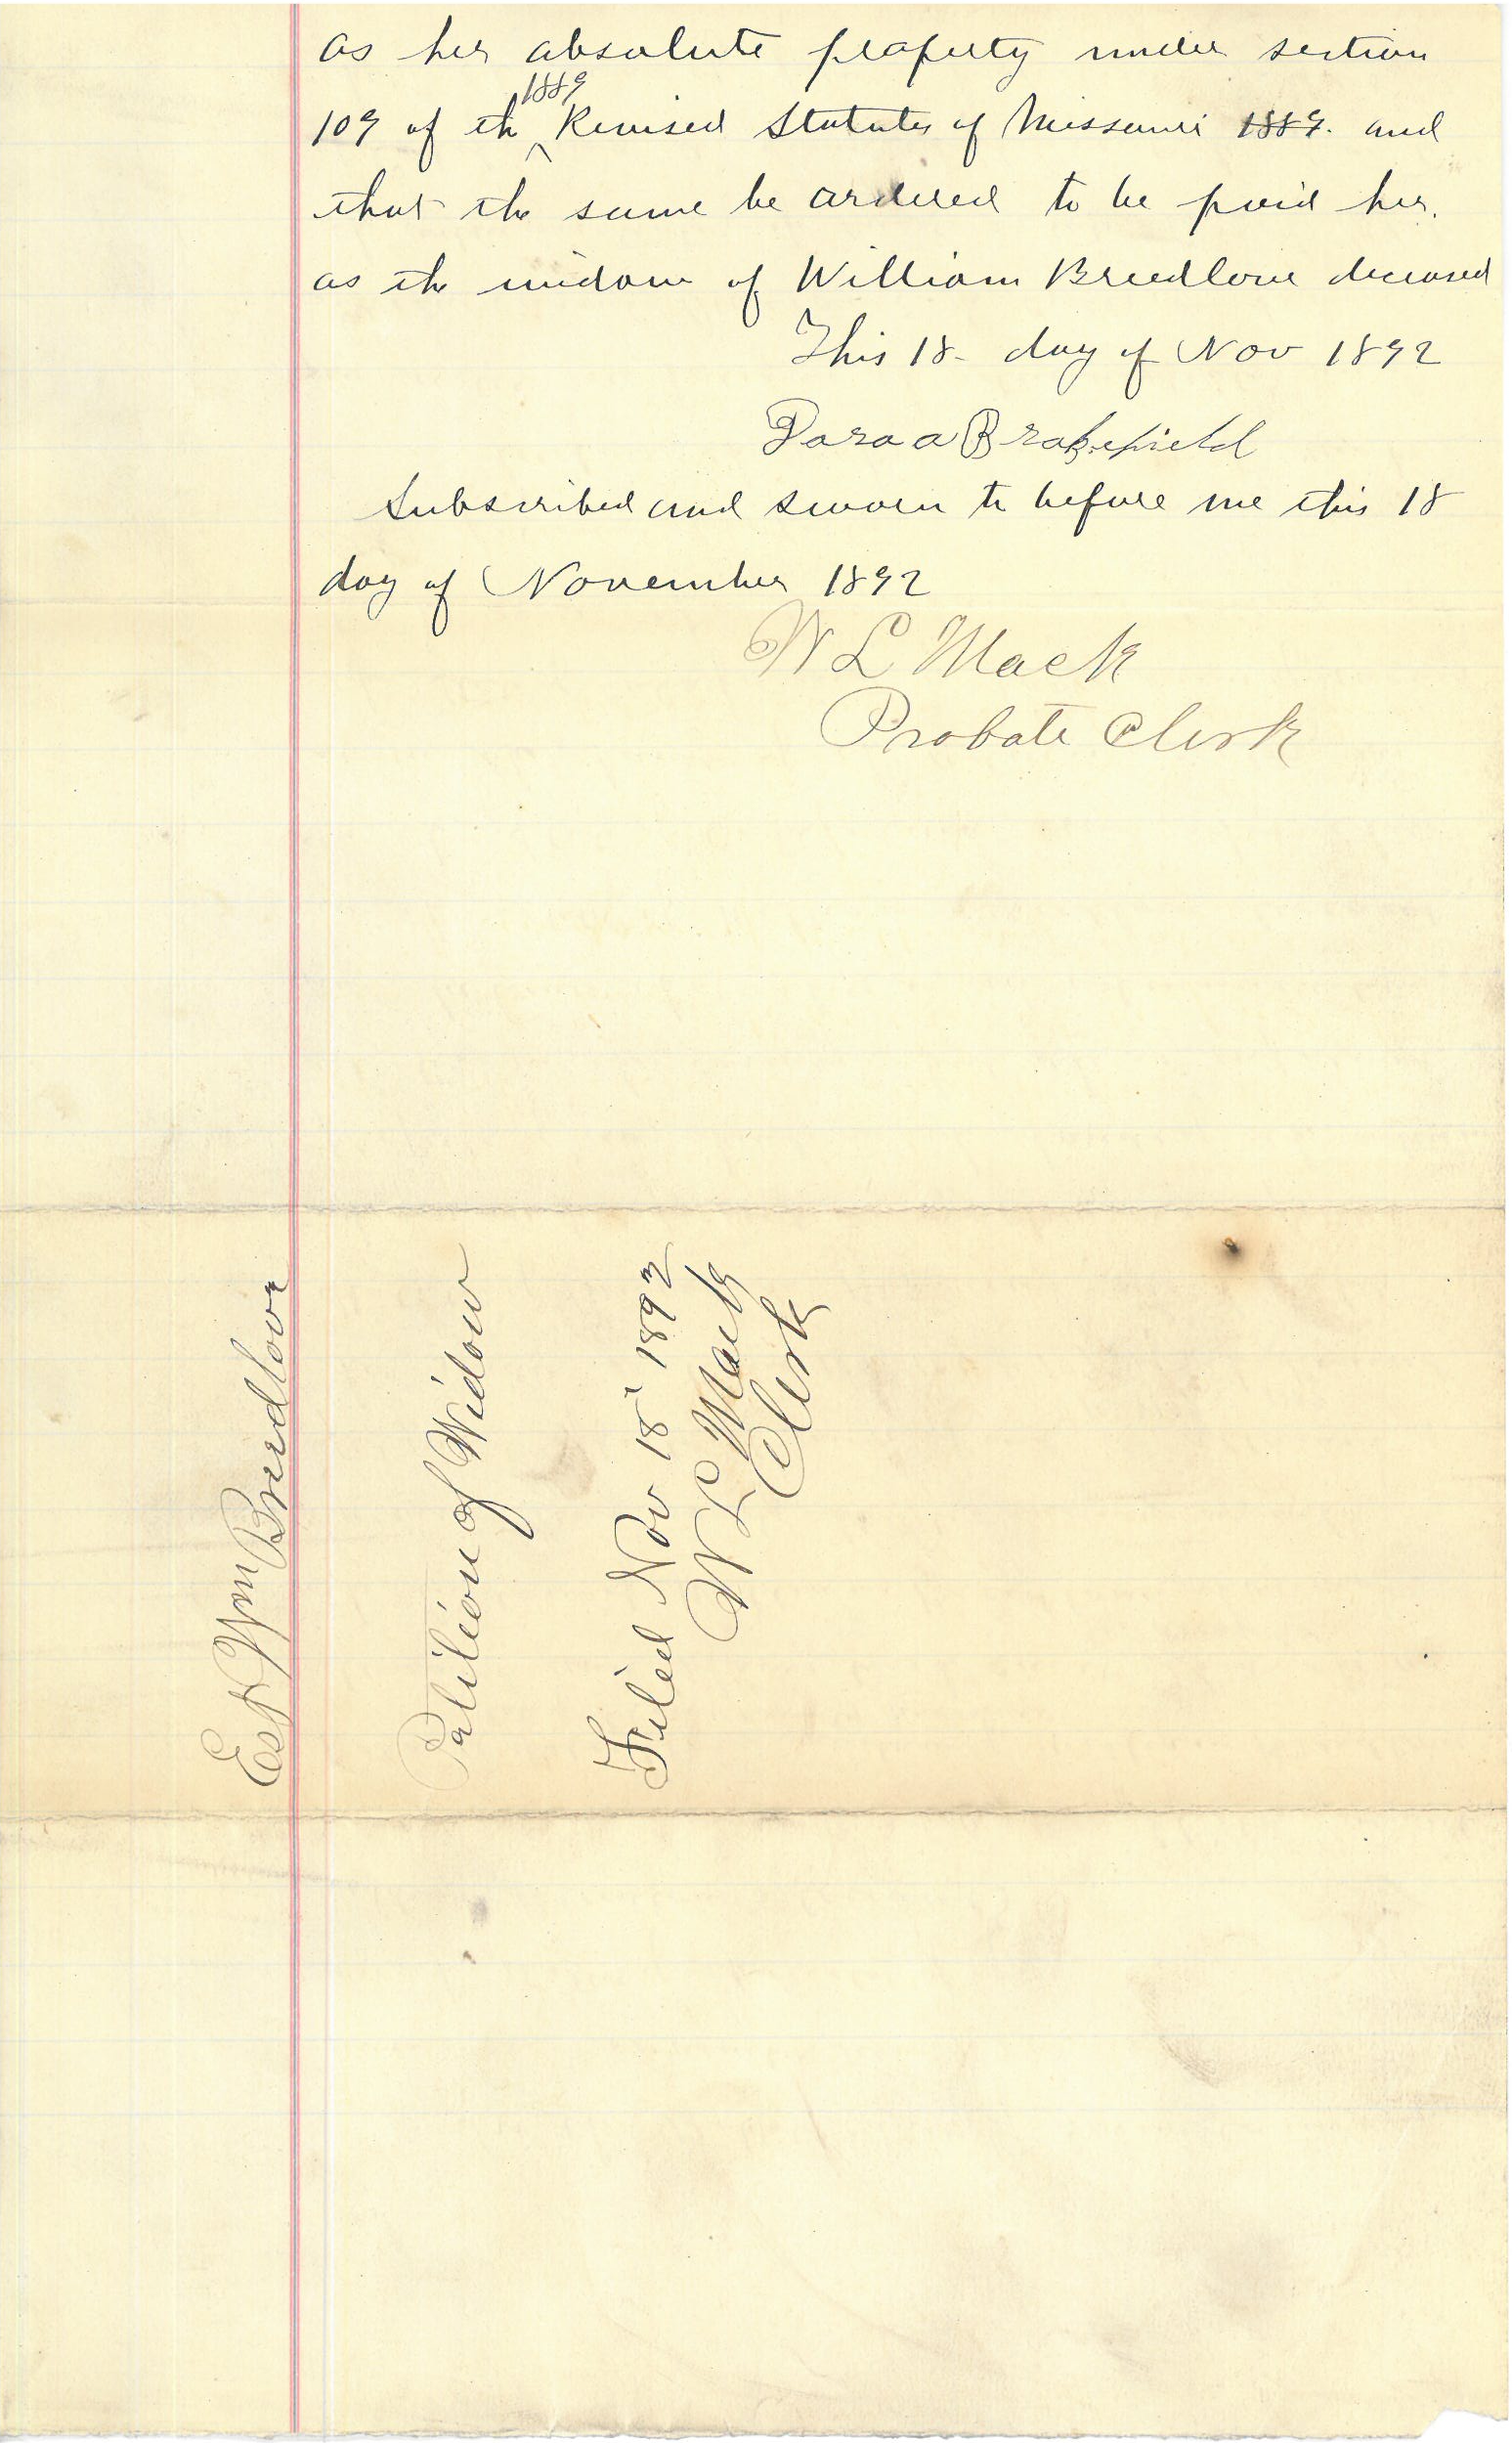 as her absolute property under section
1889
109 of th Revised Statutes of Missouri 1889. and
that the same be ordered to be paid her.
as the widow of William Breedlove deceased
This 18 - day of Nov 1892
Dora a Brakefield
Subscribed and sworn to before me this 18
day of November 1892
W L Mack
Probate Clerk
Est Wm Breedlove
Petition of Widow
Filed Nov 18 1892
W L Mack
Clerk